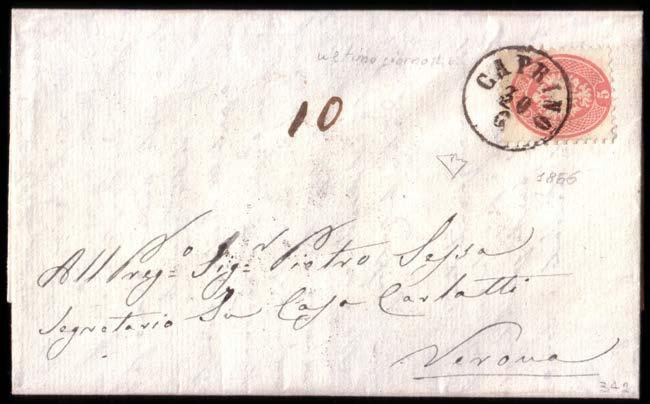 ultimo giorno di
CAPRINO
30
6
5
10
1866
All Preg.o Sig.r Pietro Sessa
Segretario In Casa Carlatti
Verona
342